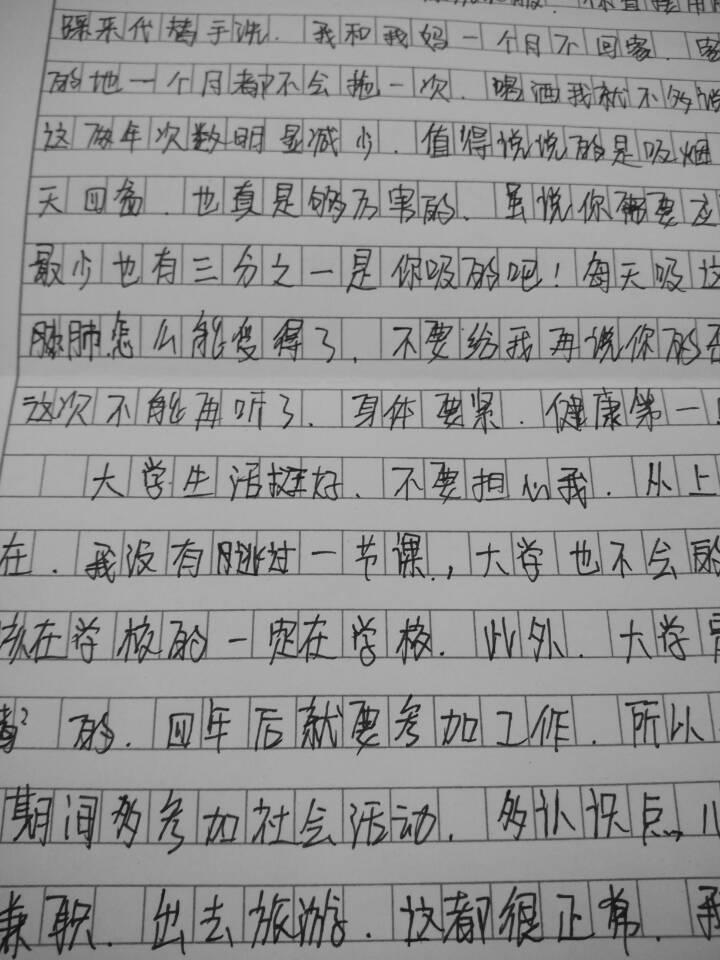 踩来代替手洗. 我和我妈一个月不回家. 家
的地一个月都不会拖一次. 喝酒我就不多说
这两年次数明显减少. 值得说说的是吸烟
天四盒. 也真是够厉害的. 虽说你需要应
最少也有三分之一是你吸的吧! 每天吸这
肺怎么能受得了. 不要给我再说你的
这次不能再听了. 身体要紧. 健康第一!
大学生活挺好. 不要担心我. 从上
在. 我没有跳过一节课, 大学也不会的
该在学校的一定在学校. 此外. 大学
的. 四年后就要参加工作. 所以
期间多参加社会活动. 多认识点儿
兼职. 出去旅游. 这都很正常. 我